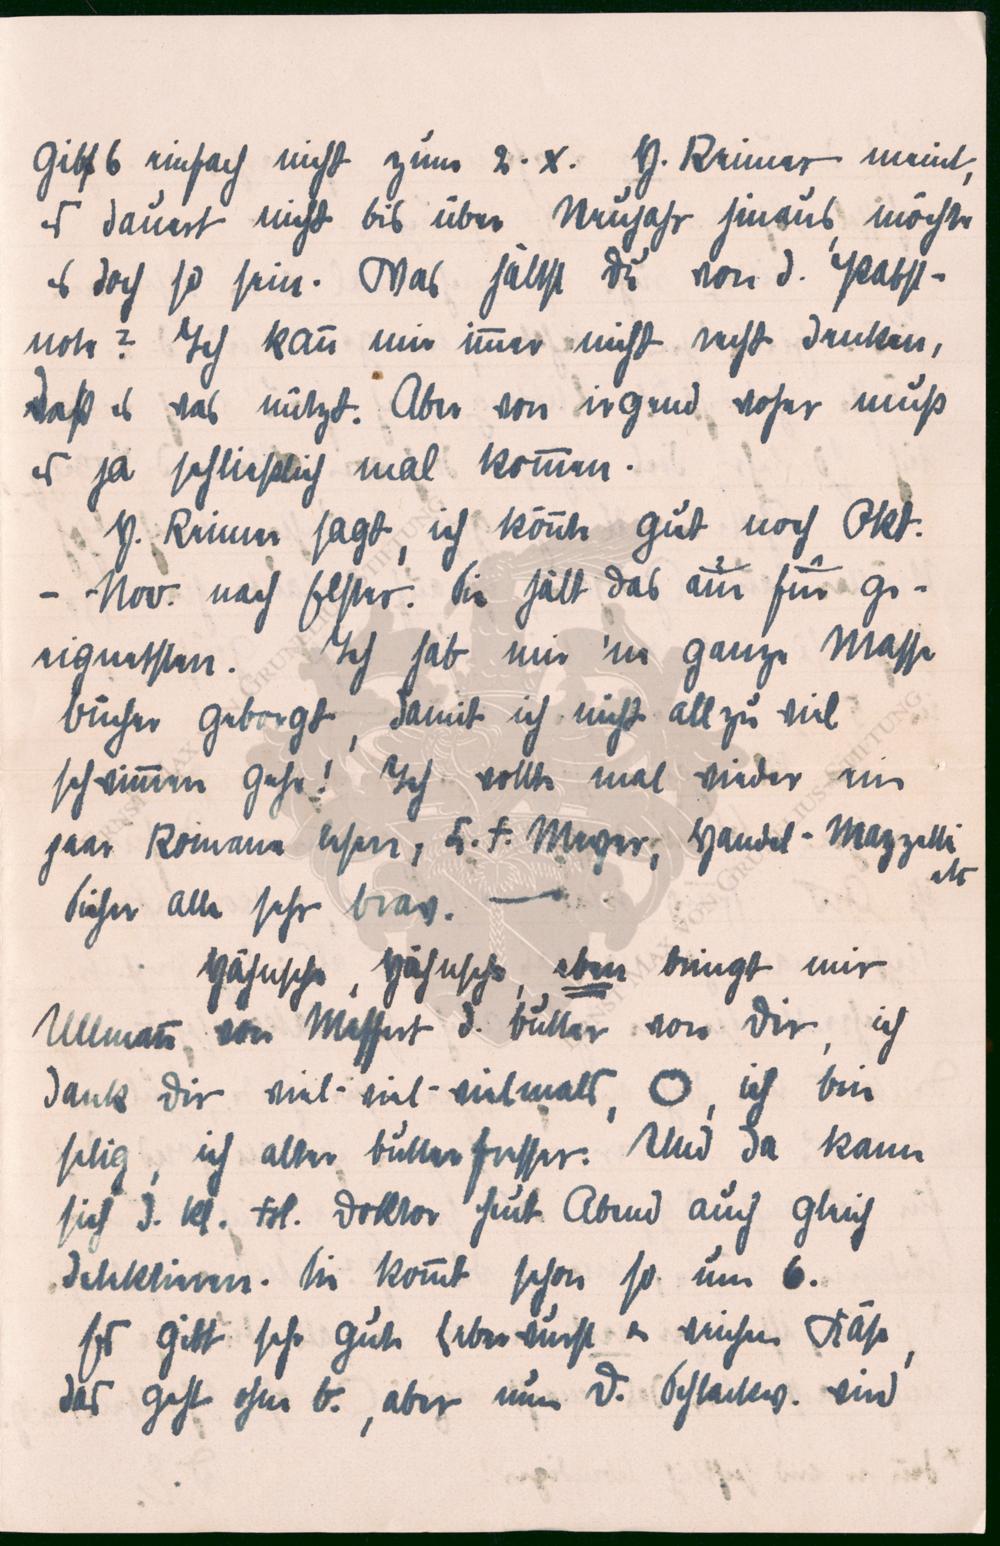 Gibts einfach nicht zum 2. X. H. Reimer meint,
es dauert nicht bis über Neujahr hinaus, möchte
es doch so sein. Was hältst Du von d. Pabst-
note? Ich kann̅ mir im̅er nicht recht denken,
daß es was nützt. Aber von irgend woher muß
es ja schließlich mal kom̅en.
H. Reimer sagt, ich kön̅te gut noch Okt.
- Nov. nach Elster. Sie hält das für ge-
eignetsten. Ich hab mir 'ne ganze Masse
Bücher geborgt, damit ich nicht allzu viel
schwim̅en gehe! Ich wollte mal wieder ein
paar Romane lesen, C. F. Meyer, Handel-Mazzetti
etc
bisher alle sehr brav. —
Hähnsche, Hähnsche, eben bringt mir
Ullman̅, von Meffert d. Butter von Dir, ich
dank Dir viel-viel-vielmals, O, ich bin
selig, ich alter Butterfresser. Und da kann
sich d. kl. Frl. Doktor heut Abend auch gleich
delektieren. Sie kom̅t schon so um 6.
Es gibt sehr gute Leberwurst u weichen Käse,
das geht ohne B., aber nun d. Schlackw. wird